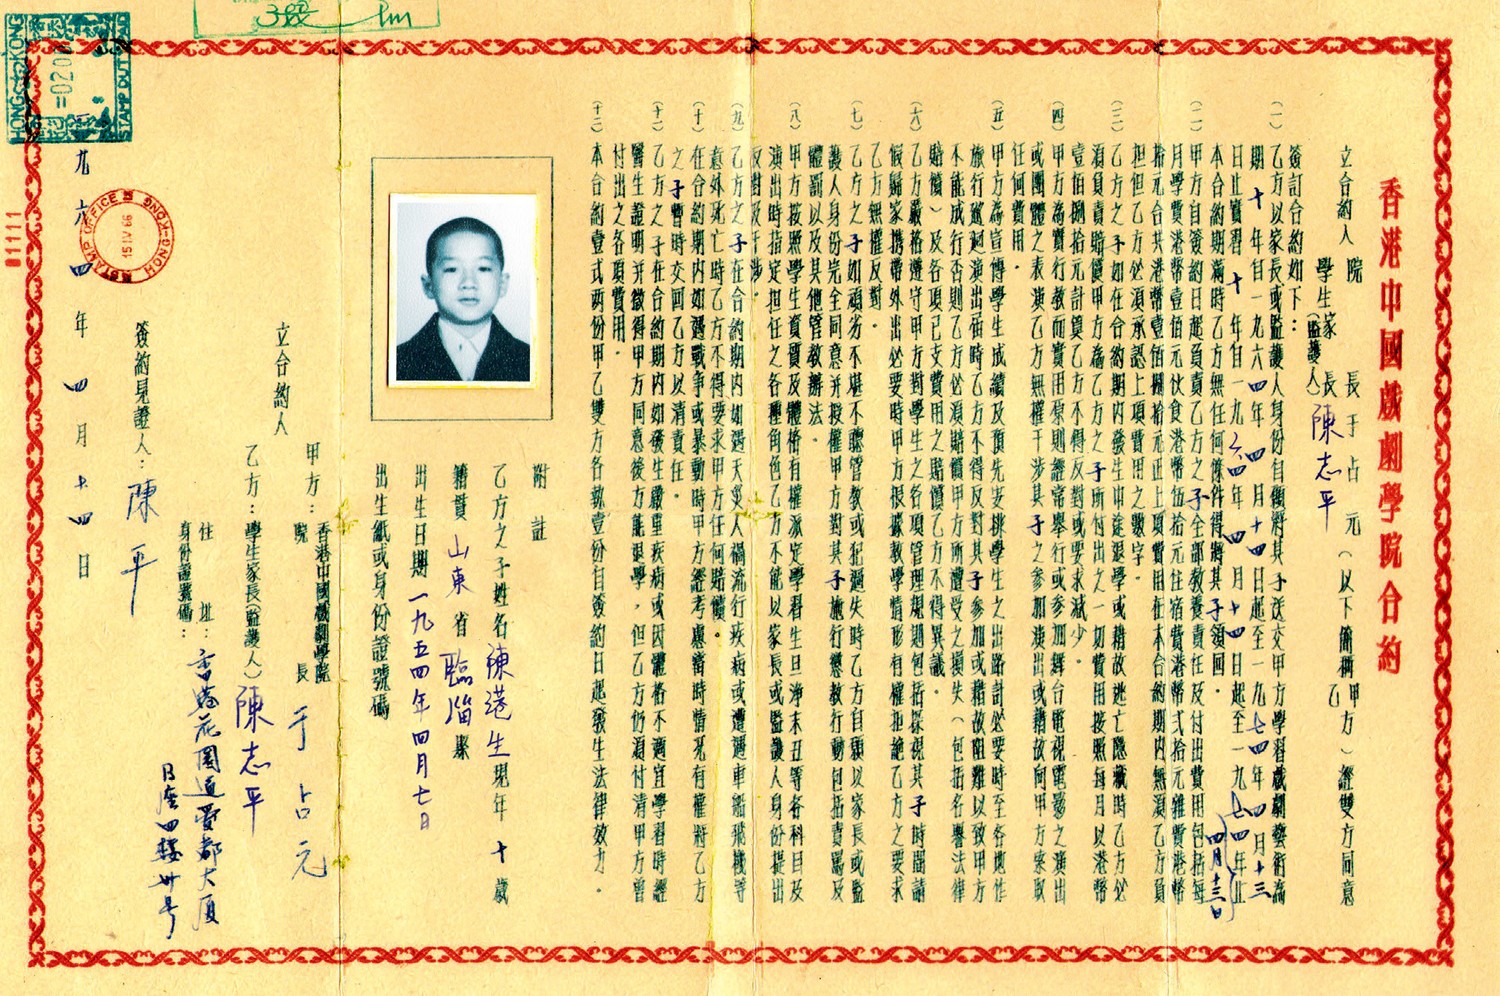 香港中國戲劇學院合約
立合約人
院長于占元(以下簡稱甲方)經雙方同意
學生家長(監護人)陳志平 乙
簽訂合約如下:
(一)乙方以家長或監護人身份自願將其子送交甲方學習戲劇藝術為
期十年自一九六四年四月十四日起至一九七四年四月十三
日止實習十年自一九六四年四月十四日起至一九七四年止
四月十三日
本合約期滿時乙方無任何條件得將其子領回。
(二)甲方自簽約日起負責乙方之子全部教養責任及付出費用包括每
月學費港幣壹佰元伙食港幣伍拾元住宿費港幣弍拾元雜費港幣
拾元合共港幣壹佰捌拾元正上項費用在本合約期內無須乙方負
担但乙方必須承認上項費用之數字。
(三)乙方之子如在合約期內發生中途退學或藉故逃亡隱藏時乙方必
須負責賠償甲方為乙方之子所付出之一切費用按照每月以港幣
壹佰捌拾元計算乙方不得反對或要求減少。
(四)甲方為實行教而實用原則經常舉行或參加舞台電視電影之演出
或團體之表演乙方無權干涉其子之參加演出或藉故向甲方索取
任何費用。
(五)甲方為宣傳學生成績及預先安排學生之出路計必要時至各地作
旅行巡迴演出屆時乙方不得反對其子參加或藉故阻難以致甲方
不能成行否則乙方必須賠償甲方所遭受之損失(包括名譽法律
賠償)及各項已支費用之賠償乙方不得異議。
(六)乙方嚴格遵守甲方對學生之各項管理規則包括探視其子時間請
假歸家携帶外出必要時甲方根據教學情形有權拒絕乙方之要求
乙方無權反對。
(七)乙方之子如頑劣不堪不聽管教或犯過失時乙方自願以家長或監
護人身份完全同意并授權甲方對其子施行懲教行動包括責罵及
體罰以及其他管教辦法。
(八)甲方按照學生資質及體格有權派定學習生旦淨末丑等各科目及
演出時指定担任之各種角色乙方不能以家長或監護人身份提出
反對及干涉。
(九)乙方之子在合約期內如遇天災人禍流行疾病或遭遇車船飛機等
意外死亡時乙方不得要求甲方任何賠償。
(十)在合約期內如遇戰爭或暴動時甲方經考慮當時情況有權將乙方
之子暫時交回乙方以清責任。
(十一)乙方之子在合約期內如發生嚴重疾病或因體格不適宜學習時經
醫生證明并徵得甲方同意後方能退學,但乙方仍須付清甲方曾
付出之各項費用。
(十二)本合約壹式两份甲乙雙方各執壹份自簽約日起發生法律效力。
附註
乙方之子姓名陳港生現年十歲
籍貫山東省臨淄縣
出生日期一九五四年四月七日
出生紙或身份證號碼
立合約人
甲方:香港中國戲劇學院
院長 于占元
乙方:學生家長(監護人)陳志平
住址:香港花園道愛都大厦
B座四樓廿号
身份證號碼:
簽約見證人:陳平
一九六四年四月十四日
HONG KONG
STAMP DUTY
=0200
STAMP OFFICE HONG KONG
15 IV 66
81111